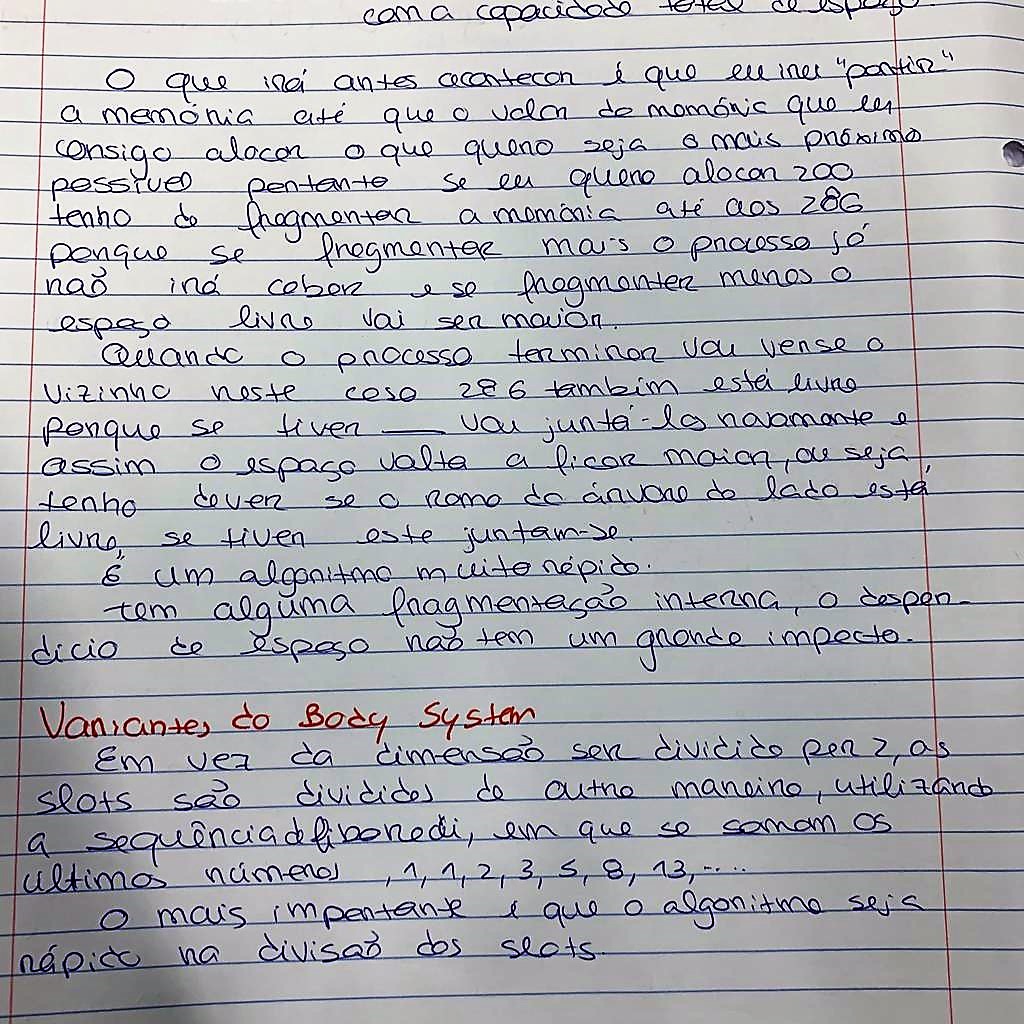 com a capacidade total de espaço.
O que irá antes acontecer é que eu irei "partir"
a memória até que o valor de memória que eu
consigo alocar o que quero seja o mais próximo
possível portanto se eu quero alocar 200
tenho de fragmentar a memória até aos 286
porque se fragmentar mais o processo já
não irá caber e se fragmentar menos o
espaço livre vai ser maior.
Quando o processo terminar vou ver se o
vizinho neste caso 286 também está livre
porque se tiver vou juntá-los novamente e
assim o espaço volta a ficar maior, ou seja,
tenho de ver se o ramo da árvore do lado está
livre, se tiver este juntam-se.
É um algoritmo muito rápido.
tem alguma fragmentação interna, o desper-
dicio de espaço não tem um grande impacto.
Variantes do Body System
Em vez da dimensão ser dividido por 2, as
slots são divididos de outra maneira, utilizando
a sequência de fibonedi, em que se somam os
ultimos números , 1, 1, 2, 3, 5, 8, 13, ....
O mais importante é que o algoritmo seja
rápido na divisão dos slots.